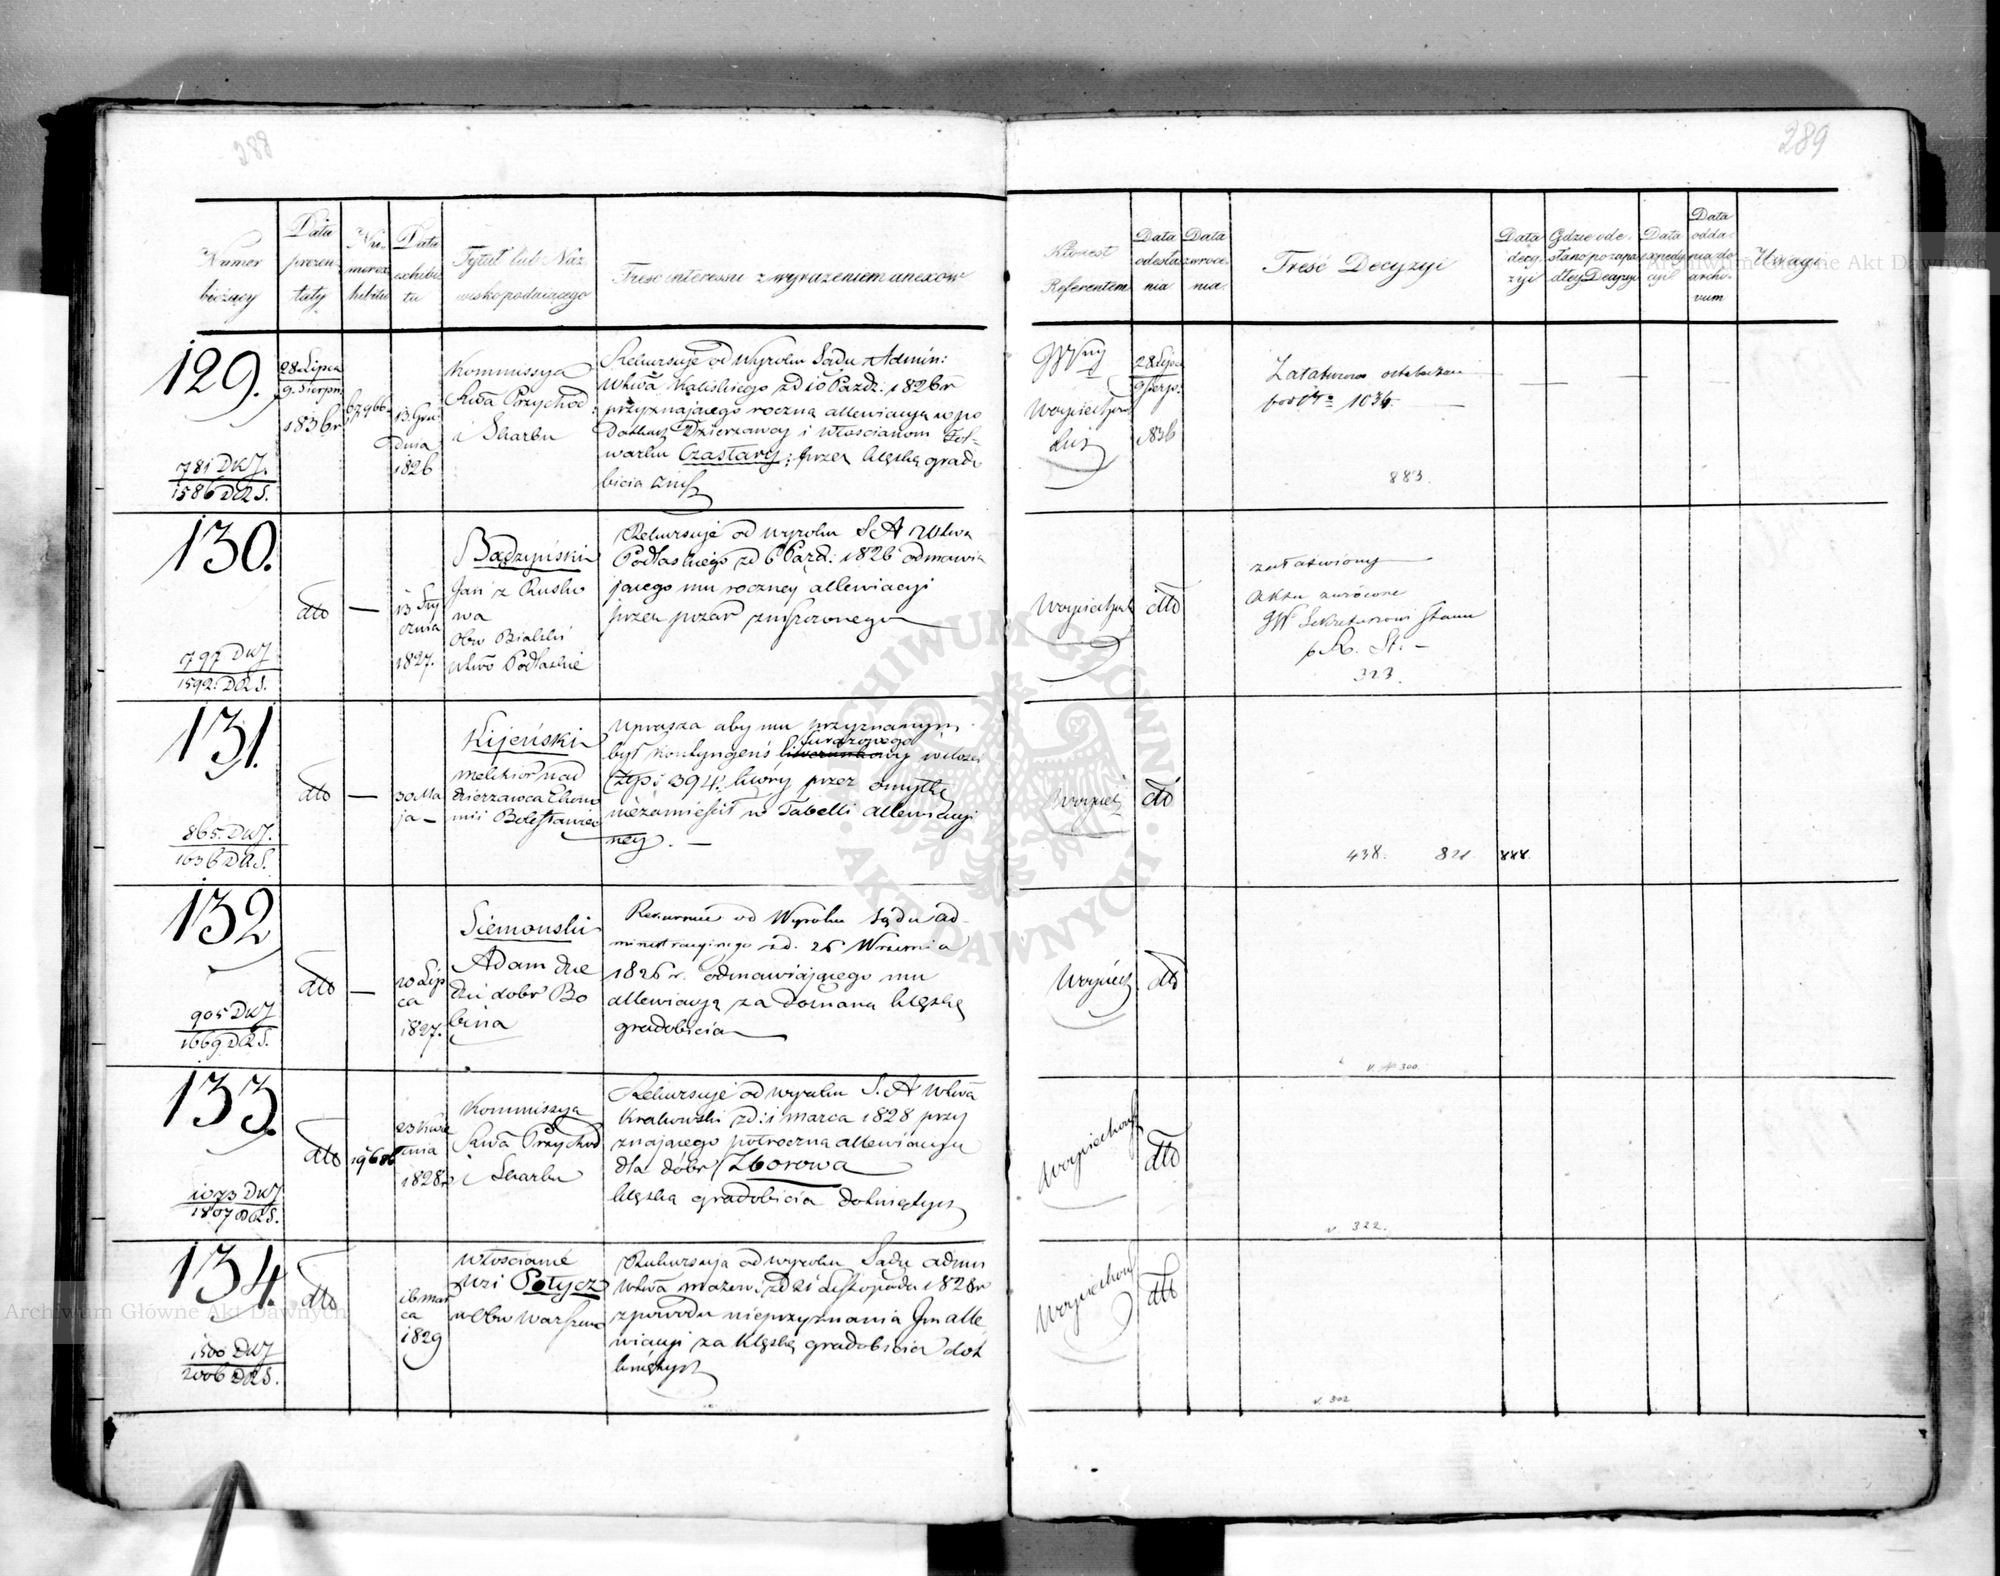 288
Numer
bieżący
Data
prezen-
taty
Nu-
merex
hibitu
Data
exhibi
tu
Tytuł lub Naz
wisko podaiącego
Treść interessu z wyrażeniem anexów
129.
781 DWJ.
1586 DRS.
28 Lipca
9. Sierpn
1836 r
67,966
13 Gru
dnia
1826
Kommissya
Rwa Przychod:
i Skarbu
Rekursuje od wyroku Sądu Admin:
Wtwa Kaliskiego zd 10 Pazdz: 1826 r
przyznającego roczną allewiacyą w po
datkach Dzierzawcy i włościanom Fol-
warku Czastary; przez klęskę grado
bicia
130.
797 DWJ
1592. DRS.
dto
—
13 Sty
cznia
1827.
Bądzyński
Jan z Rusko
wa
Obw Bialski
wtwo Podlaskie
Rekursuje od wyroku S.A Wtwa
Podlaskiego zd 6 Pazd: 1826 odmawia
jącego mu roczney allewiacyi
przez pożar zniszczonego
131.
865. DWJ.
1636 DRS.
dto
—
30 Ma
ja —
Kijeński
Melchior nad
dzierzawca Ekono
mii Bolesławiec
Uprasza aby mu przyznanym
furażowego
był kontyngens liwerunkowy w ilości
Złp: 394. który przez omyłkę
niezamieścił w Tabelli allewiacyi
ney. —
132
905 DWJ
1669 DRS.
dto
—
20 Lip
ca
1827.
Siemoński
Adam dzie
dzic dobr Bo
bina
Rekursuie od Wyroku Sądu ad-
ministracyinego zd. 26 Września
1826 r. odmawiającego mu
allewiacyą za doznaną klęskę
gradobicia
133.
1073 DWJ
1807 DRS.
dto
19686
23 Kwie
tnia
1828 r
Kommissya
Rwa Przychod
i Skarbu
Rekursuje od wyroku S.A Wtwa
Krakowski zd: 1 marca 1828 przy
znającego półroczną allewiacyą
dla dóbr Zborowa
klęską gradobicia dotkniętych
134.
1500 DWJ
2006 DRS.
dto
16 mar
ca
1829
Włościanie
wsi Potycz
w Obw Warszaw
Rekursują od wyroku Sądu admin
Wtwa mazow: zd 21 Listopada 1828 r
zpowodu nieprzyznania Im alle
wiacyi za klęskę gradobicia dot
kniętych
289
Kto iest
Referentem
Data
odesła
nia
Data
zwróce
nia.
Treść Decyzyi
Data
decy-
zyi
Gdzie ode-
słano po zapa
dłey Decyzyi
Data
expedy
cyi
Data
odda-
nia do
archi-
vum
Uwagi
JW
Wojciechow
ski
28 Lipca
9 Sierp:
1836
pod No 1036.
883.
Wojciechow
dto
załatwiony
Akta zwrócone
JW Sekretarzowi Stanu
p R. St. —
323.
Wojciech
dto
438. 821 888.
Wojciech
dto
v. No 300.
Wojciechows
dto
v. 322.
Wojciechows
dto
v. 302
ARCHIWUM GŁÓWNE
AKT DAWNYCH
Archiwum Główne Akt Dawnych
Archiwum Główne Akt Dawnych